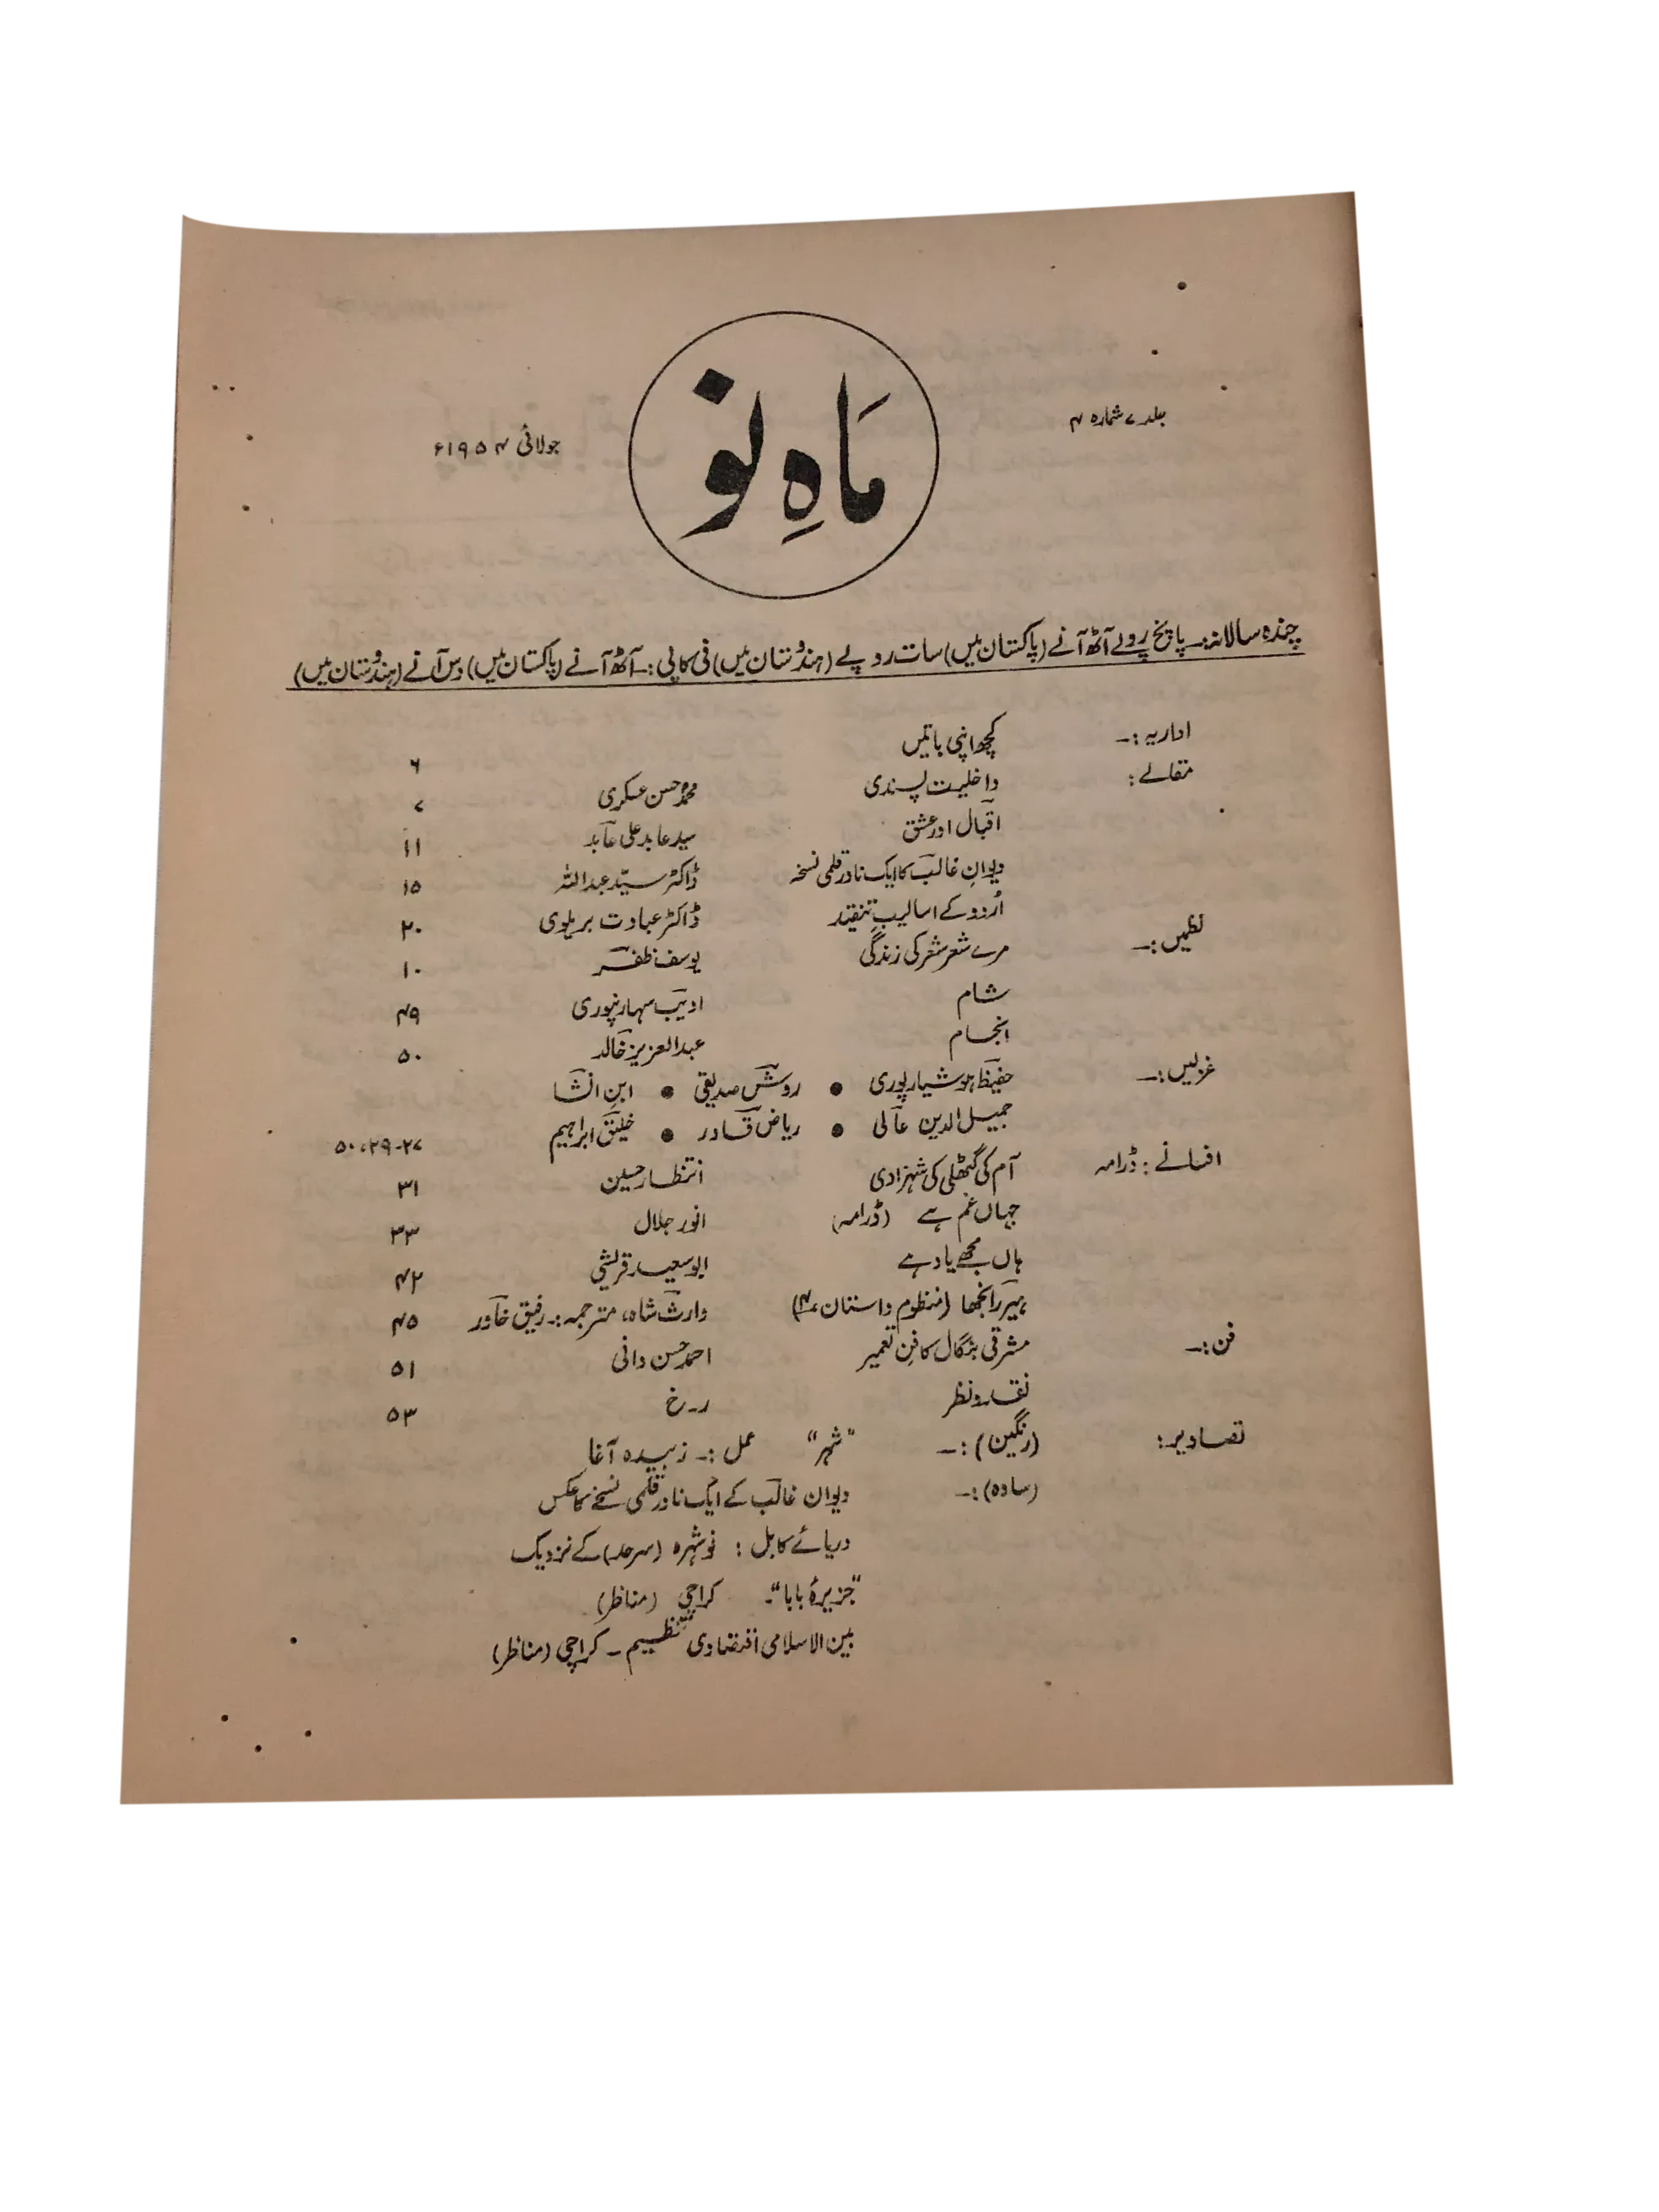 جلد ۷ شمارہ ۴
مَاہِ نَو
جولائی ۱۹۵۴ء
چندہ سالانہ:۔ پانچ روپے آٹھ آنے (پاکستان میں) سات روپے (ہندوستان میں) فی کاپی:۔ آٹھ آنے (پاکستان میں) دس آنے (ہندوستان میں)
اداریہ:۔ کچھ اپنی باتیں ۶
مقالے: داخلیت پسندی محمد حسن عسکری ۷
اقبال اور عشق سید عابد علی عابد ۱۱
دیوانِ غالب کا ایک نادر قلمی نسخہ ڈاکٹر سیّد عبداللہ ۱۵
اُردو کے اسالیبِ تنقید ڈاکٹر عبادت بریلوی ۲۰
نظمیں:۔ مرے شعر شعر کی زندگی یوسف ظفر ۱۰
شام ادیب سہارنپوری ۴۹
انجام عبدالعزیز خالد ۵۰
غزلیں:۔ حفیظ ہوشیارپوری ● روش صدیقی ● ابنِ انشا
جمیل الدین عالی ● ریاض قادر ● خلیق ابراہیم ۲۷-۲۹، ۵۰
افسانے: ڈرامہ آم کی گٹھلی کی شہزادی انتظار حسین ۳۱
جہاں غم ہے (ڈرامہ) انور جلال ۳۳
ہاں مجھے یاد ہے ابوسعید قریشی ۴۲
ہیر رانجھا (منظوم داستان ۴) وارث شاہ، مترجمہ:۔ رفیق خاور ۴۵
فن:۔ مشرقی بنگال کا فنِ تعمیر احمد حسن دانی ۵۱
نقد و نظر ر۔خ ۵۳
تصاویر: (رنگین):۔ "شہر" عمل:۔ زبیدہ آغا
(سادہ):۔ دیوان غالب کے ایک نادر قلمی نسخے کا عکس
دریائے کابل: نوشہرہ (سرحد) کے نزدیک
"جزیرۂ بابا"۔ کراچی (مناظر)
بین الاسلامی اقتصادی تنظیم ۔ کراچی (مناظر)